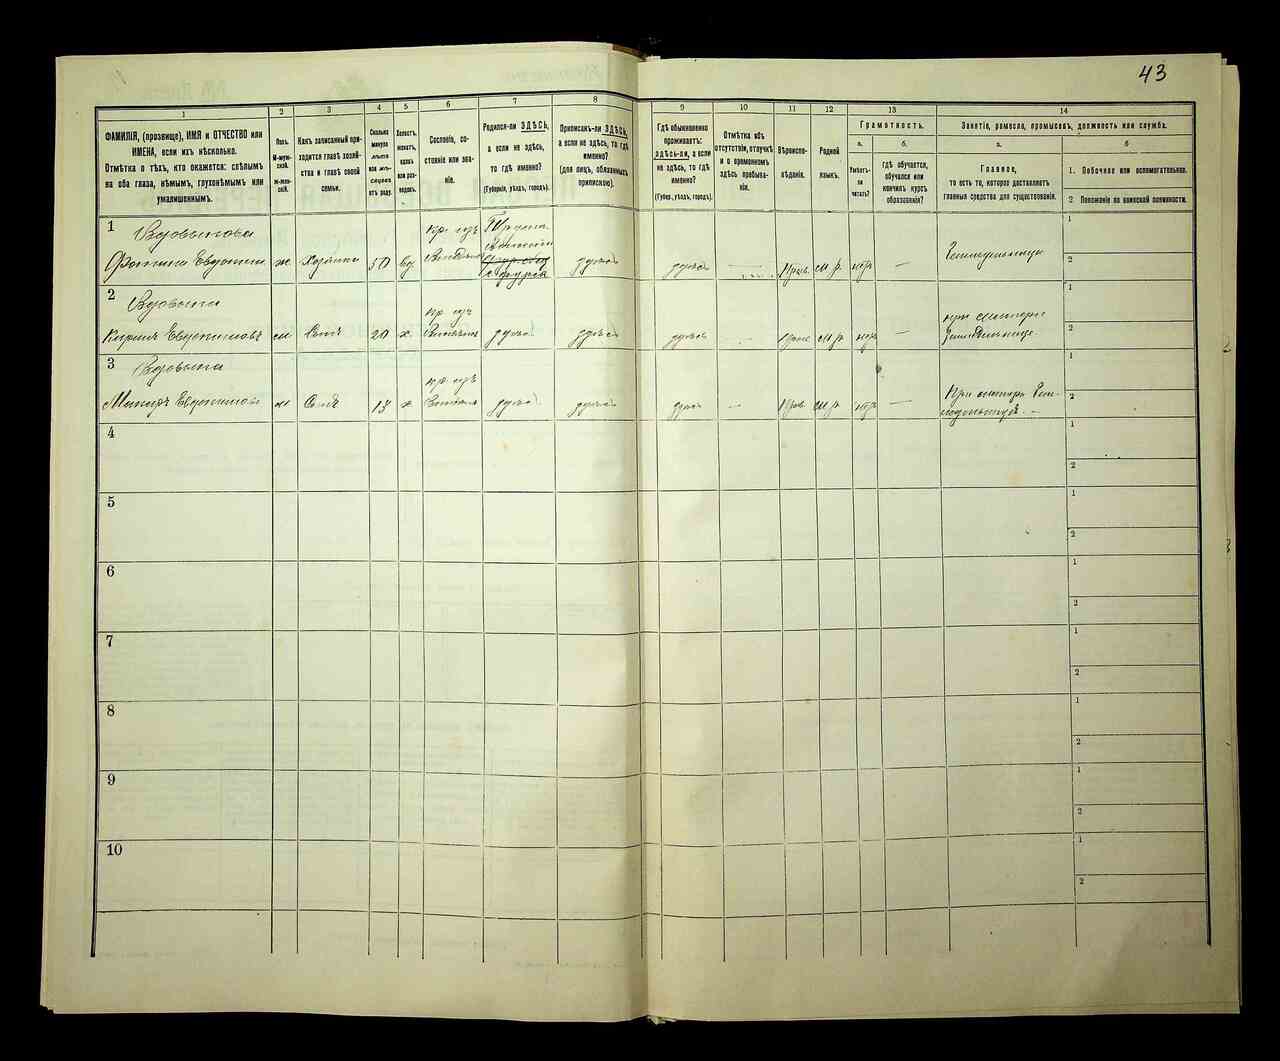 43
1
2
3
4
5
6
7
8
9
10
11
12
13
14
ФАМИЛІЯ, (прозвище), ИМЯ и ОТЧЕСТВО или
ИМЕНА, если ихъ нѣсколько.
Отмѣтка о тѣхъ, кто окажется: слѣпымъ
на оба глаза, нѣмымъ, глухонѣмымъ или
умалишеннымъ.
Полъ.
М-муж-
ской.
Ж-жен-
скій.
Какъ записанный при-
ходится главѣ хозяй-
ства и главѣ своей
семьи.
Сколько
минуло
лѣтъ
или мѣ-
сяцевъ
отъ роду.
Холостъ,
женатъ,
вдовъ
или раз-
веденъ.
Сословіе, со-
стояніе или зва-
ніе.
Родился-ли ЗДѢСЬ,
а если не здѣсь,
то гдѣ именно?
(Губернія, уѣздъ, городъ).
Приписанъ-ли ЗДѢСЬ,
а если не здѣсь, то гдѣ
именно?
(для лицъ, обязанныхъ
припискою).
Гдѣ обыкновенно
проживаетъ:
здѣсь-ли, а если
не здѣсь, то гдѣ
именно?
(Губер., уѣздъ, городъ).
Отмѣтка объ
отсутствіи, отлучкѣ
и о временномъ
здѣсь пребыва-
ніи.
Вѣроиспо-
вѣданіе.
Родной
языкъ.
Грамотность.
а.
б.
Умѣетъ-
ли
читать?
гдѣ обучается,
обучался или
кончилъ курсъ
образованія?
Занятіе, ремесло, промыселъ, должность или служба.
а.
б
Главное,
то есть то, которое доставляетъ
главныя средства для существованія.
1. Побочное или вспомогательное.
2. Положеніе по воинской повинности.
1
Вдовыкова
Евдокима ж Хозяйка 50 вд кр. изъ здѣсь здѣсь — Прав. м.р. нѣтъ —
1
2
2
Вдовыка
Кирилъ Евдокимовъ м Сынъ 20 х. кр. изъ здѣсь здѣсь здѣсь — Прав м.р. нѣтъ — при матери
1
2
3
Вдовыка
Макаръ Евдокимов м Сынъ 13 х. кр. изъ здѣсь здѣсь здѣсь — Прав м.р. нѣтъ — При матери
1
2
4
1
2
5
1
2
6
1
2
7
1
2
8
1
2
9
1
2
10
1
2